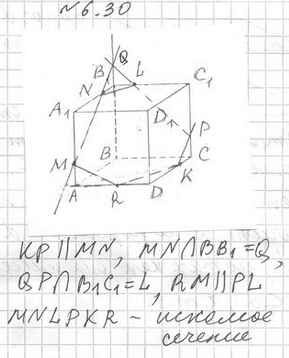 №6.30
Q
B₁ L C₁
N
A₁ D₁
P
M B C
K
A R D
KP||MN, MN∩BB₁=Q,
QP∩B₁C₁=L, RM||PL
MNLPKR – искомое
сечение